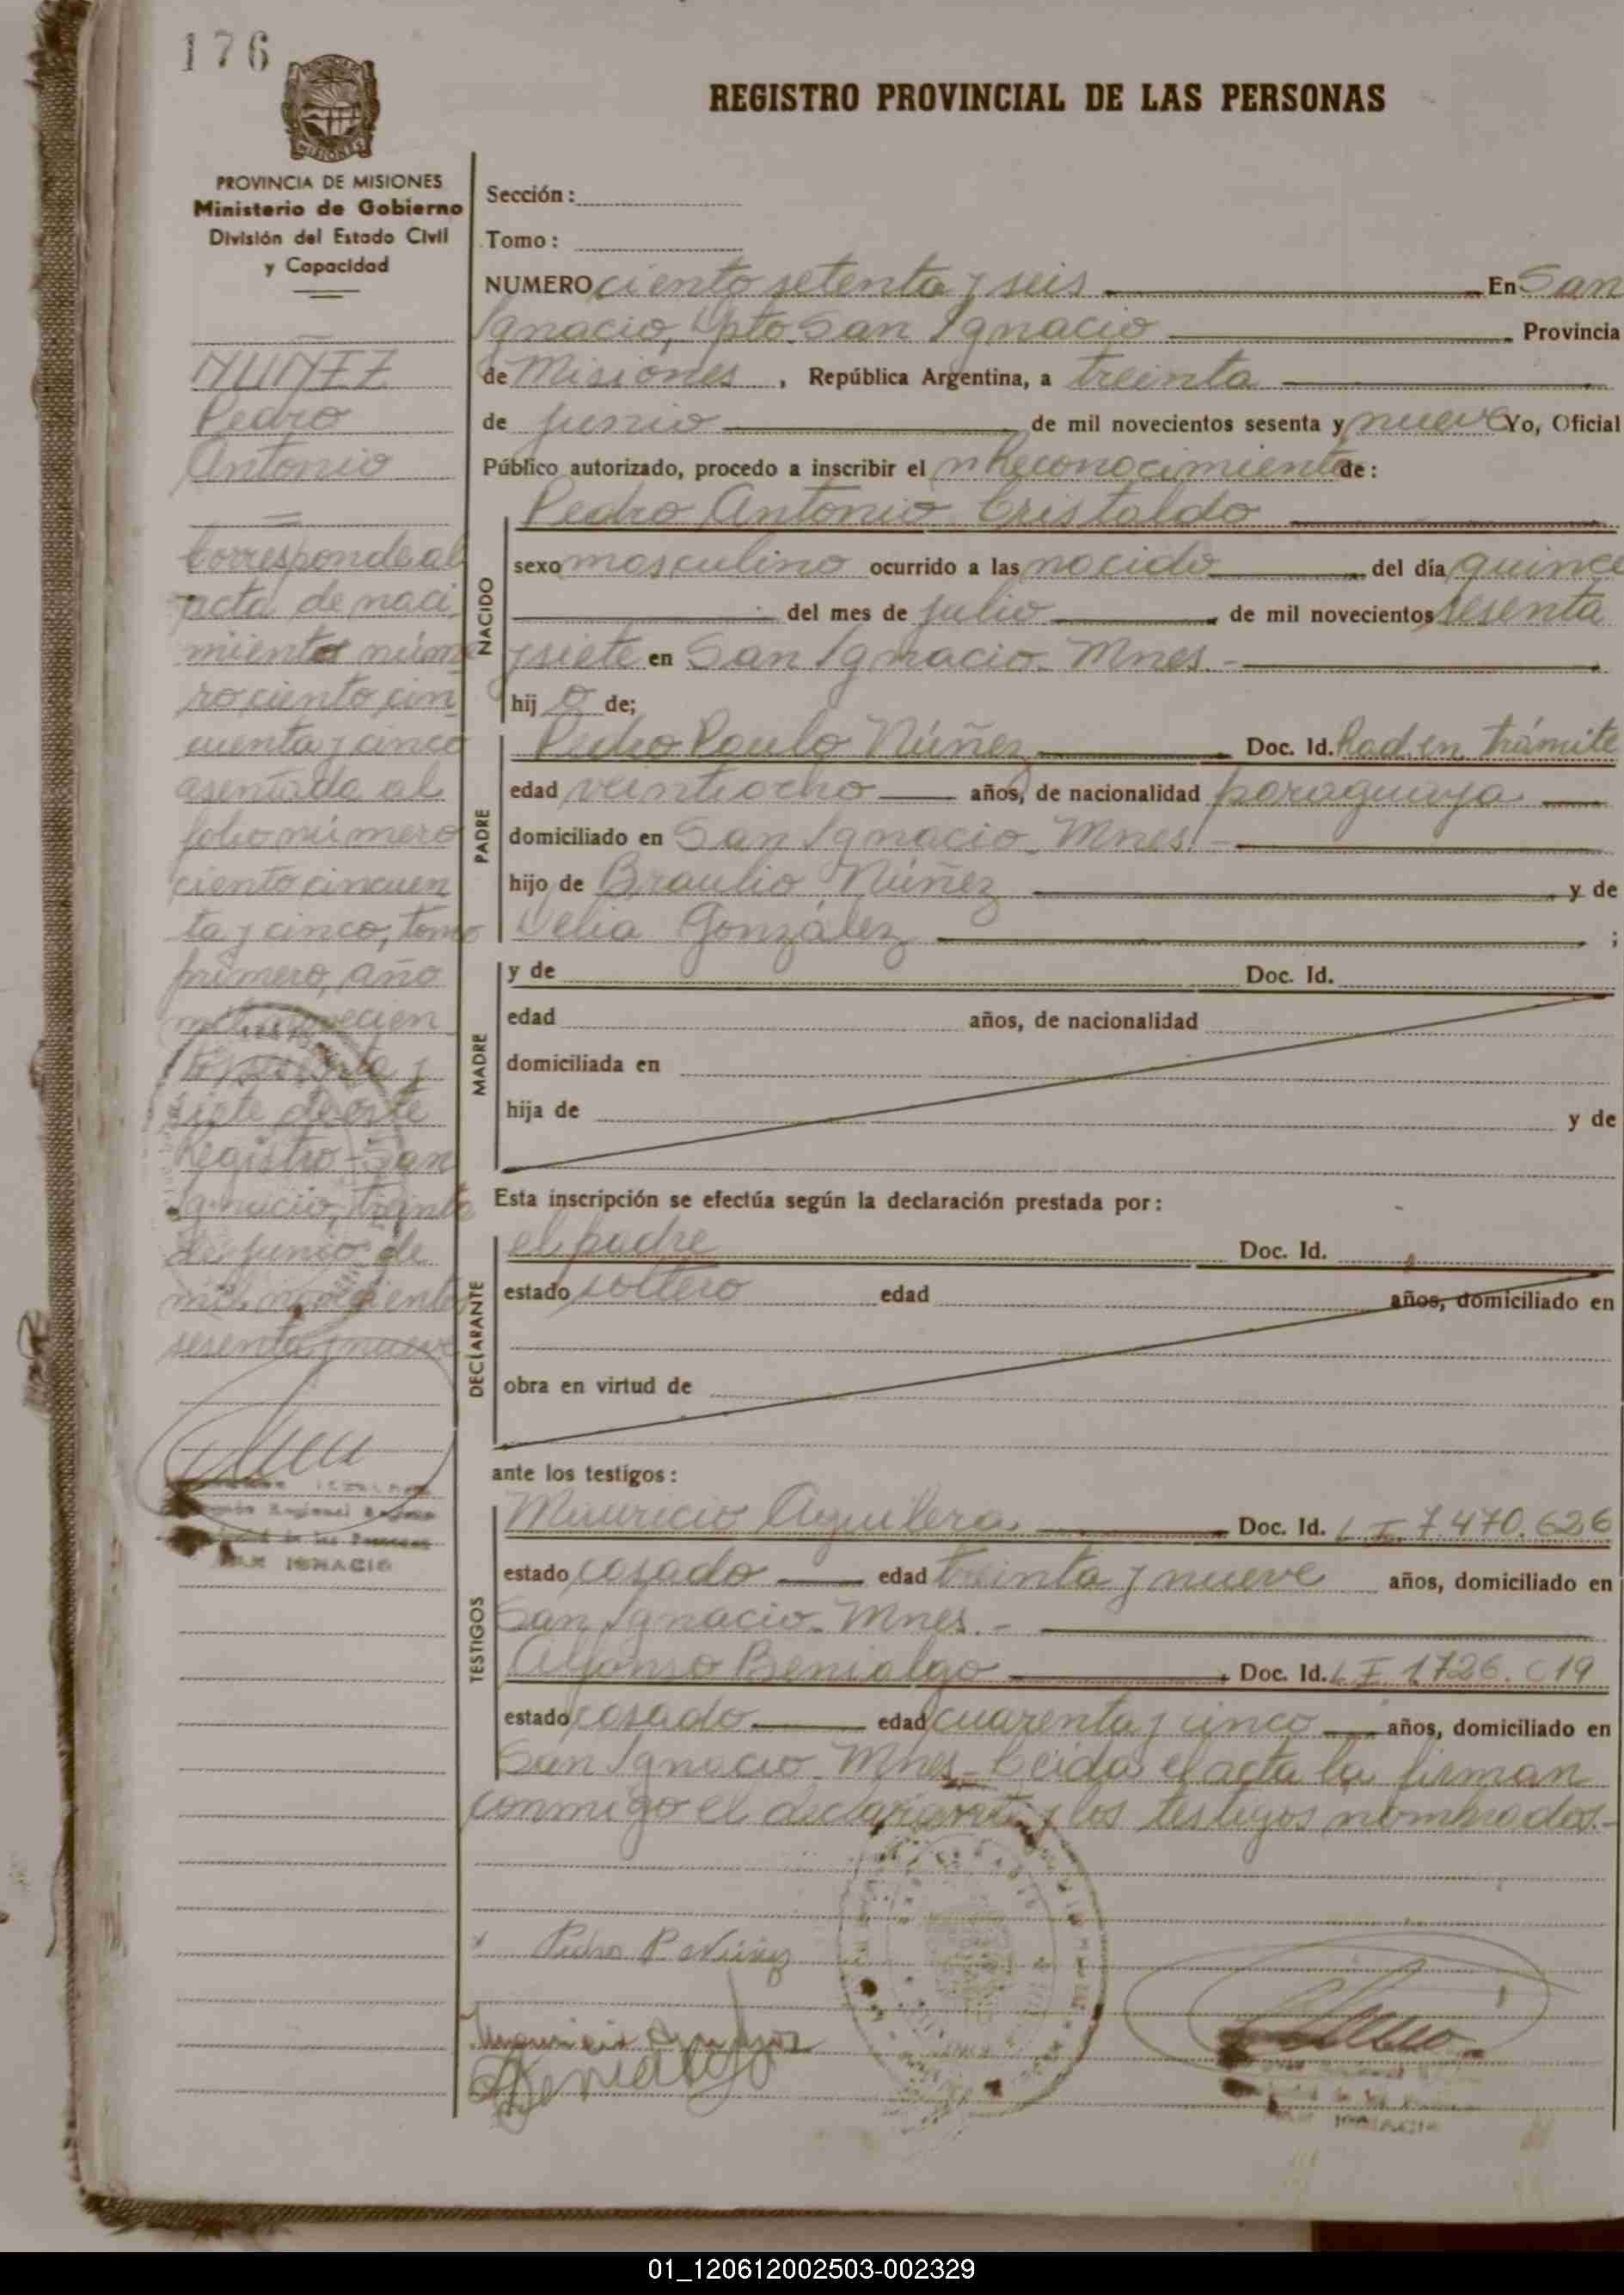 176
REGISTRO PROVINCIAL DE LAS PERSONAS
PROVINCIA DE MISIONES
Ministerio de Gobierno
División del Estado Civil
y Capacidad
NUÑEZ
Pedro
Antonio
Corresponde al
acta de naci
miento núme
ro ciento cin
cuenta y cinco
asentada al
folio número
ciento cincuen
ta y cinco, tomo
primero, año
mil novecien
tos sesenta y
siete de este
Registro - San
Ignacio, treinta
de junio de
mil novecientos
sesenta y nueve
SAN IGNACIO
Sección:
Tomo:
NUMERO ciento setenta y seis En San
Ignacio, Dpto. San Ignacio Provincia
de Misiones, República Argentina, a treinta
de junio de mil novecientos sesenta y nueve Yo, Oficial
Público autorizado, procedo a inscribir el n Reconocimiento de:
Pedro Antonio Cristaldo
NACIDO
sexo masculino ocurrido a las nacido del día quince
del mes de julio de mil novecientos sesenta
y siete en San Ignacio - Mnes. -
hij o de;
PADRE
Pedro Paulo Núñez Doc. Id. Rad. en trámite
edad veintiocho años, de nacionalidad paraguaya
domiciliado en San Ignacio - Mnes. -
hijo de Braulio Núñez y de
Delia González ;
MADRE
y de Doc. Id.
edad años, de nacionalidad
domiciliada en
hija de y de
Esta inscripción se efectúa según la declaración prestada por:
DECLARANTE
el padre Doc. Id.
estado soltero edad años, domiciliado en
obra en virtud de
ante los testigos:
TESTIGOS
Mauricio Aguilera Doc. Id. L E 7.470.626
estado casado edad treinta y nueve años, domiciliado en
San Ignacio - Mnes. -
Alfonso Benialgo Doc. Id. L E 1.726.019
estado casado edad cuarenta y cinco años, domiciliado en
San Ignacio - Mnes - Leida el acta la firman
conmigo el declarante y los testigos nombrados. -
x Pedro P. Núñez
01_120612002503-002329